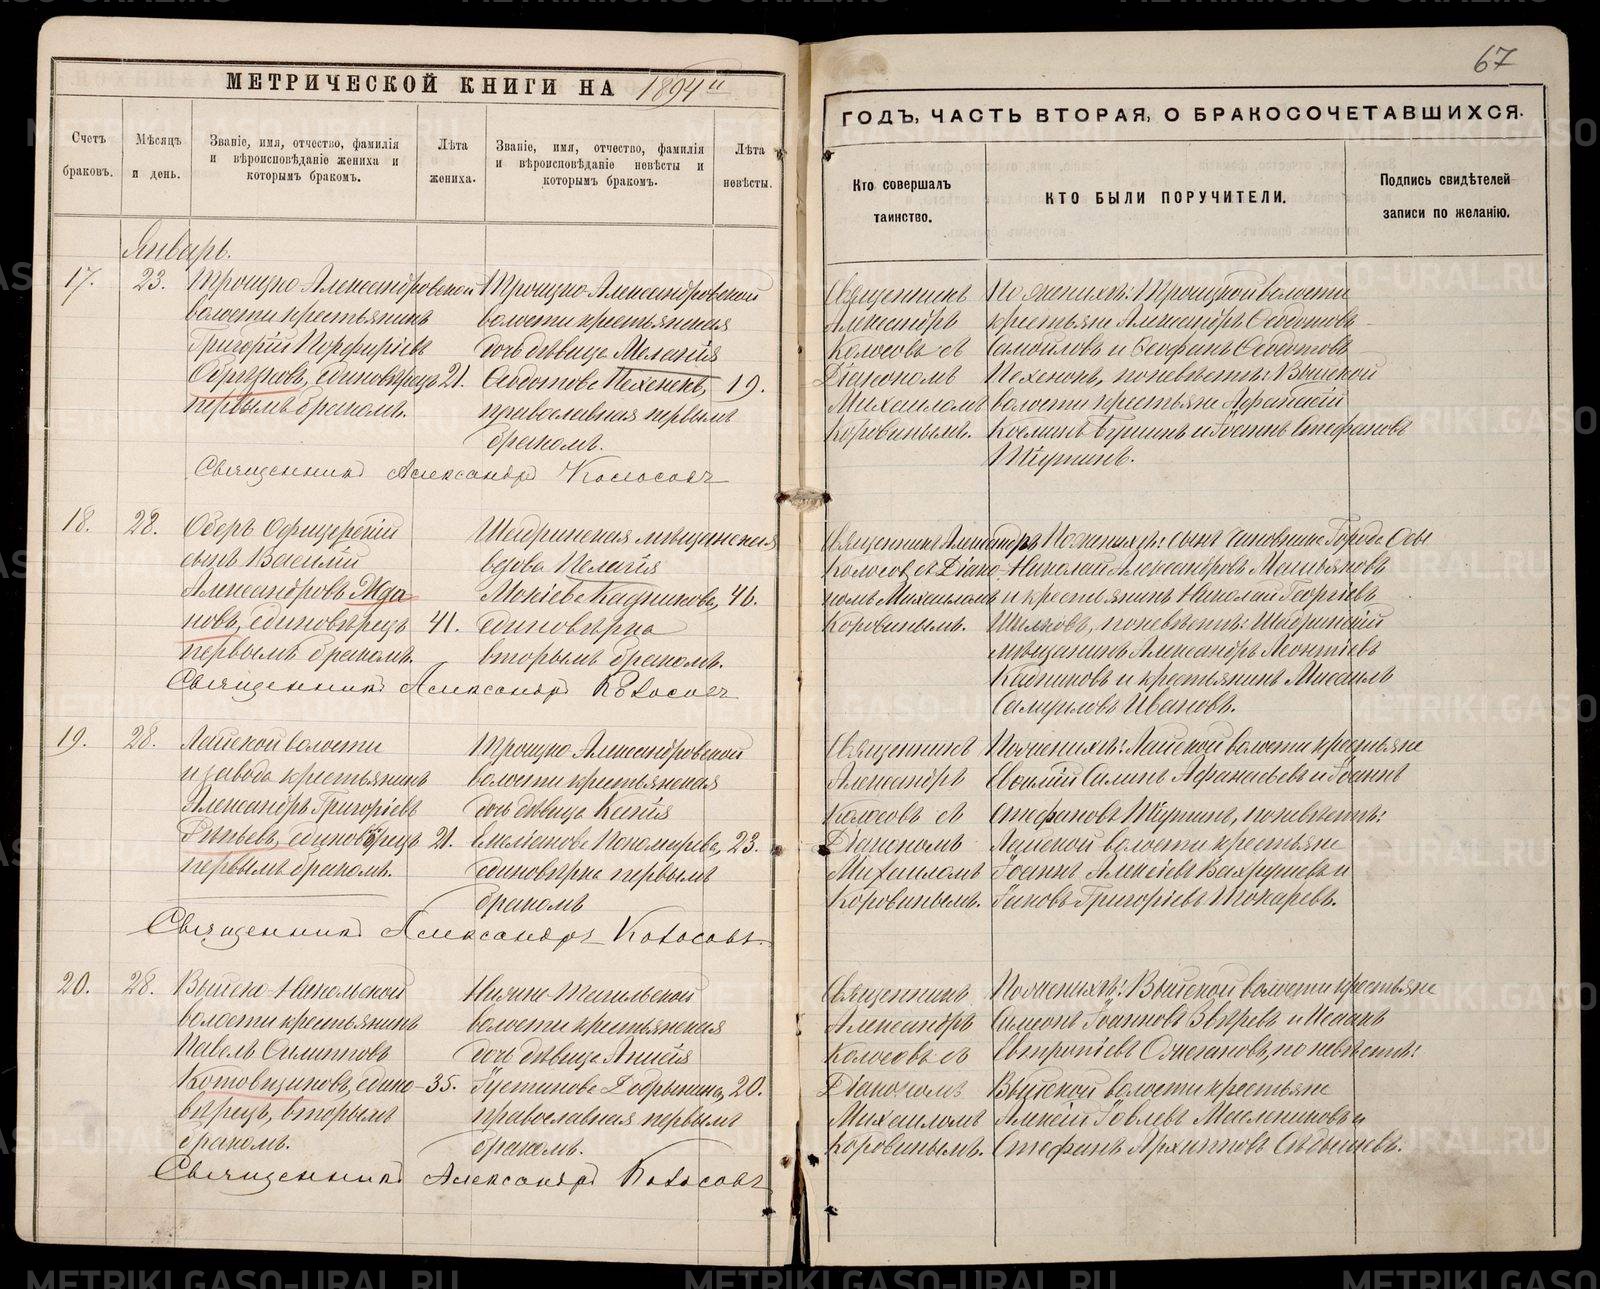 МЕТРИЧЕСКОЙ КНИГИ НА 1894й
Счетъ браковъ.
Мѣсяцъ и день.
Званіе, имя, отчество, фамилія
и вѣроисповѣданіе жениха и
которымъ бракомъ.
Лѣта
жениха.
Званіе, имя, отчество, фамилія
и вѣроисповѣданіе невѣсты и
которымъ бракомъ.
Лѣта
невѣсты.
Январь.
17. 23. Троицко Александровской
волости крестьянинъ
Григорій Порфиріевъ
единовѣрецъ 21.
первымъ бракомъ.
Троицко Александровской
волости крестьянская
дочь дѣвица Меланія
Ѳедотова Пехенекъ, 19.
православная первымъ
бракомъ.
Священникъ Александръ Колосовъ
18. 28. Оберъ Офицерскій
сынъ Василій
Александровъ Жда
новъ, единовѣрецъ 41.
первымъ бракомъ.
Шадринская мѣщанская
вдова Пелагія
Мокіева Кадникова, 46.
единовѣрка
вторымъ бракомъ.
Священникъ Александръ Колосовъ
19. 28. Лайской волости
и завода крестьянинъ
Александръ Григорьевъ
единовѣрецъ 21.
первымъ бракомъ.
Троицко Александровской
волости крестьянская
дочь дѣвица Ксенія
Емельянова Пономарева, 23.
единовѣрка первымъ
бракомъ
Священникъ Александръ Колосовъ.
20. 28. Выйско-Никольской
волости крестьянинъ
Павелъ Филипповъ
Котовщиковъ, едино- 35.
вѣрецъ, вторымъ
бракомъ.
Нижне-Тагильской
волости крестьянская
дочь дѣвица Анисія
Іустинова Добрынина, 20.
православная первымъ
бракомъ.
Священникъ Александръ Колосовъ
67
ГОДЪ, ЧАСТЬ ВТОРАЯ, О БРАКОСОЧЕТАВШИХСЯ.
Кто совершалъ
таинство.
КТО БЫЛИ ПОРУЧИТЕЛИ.
Подпись свидѣтелей
записи по желанію.
Священникъ
Александръ
Колосовъ съ
Діакономъ
Михаиломъ
Коровинымъ.
По женихѣ: Троицкой волости
крестьяне Александръ Ѳедотовъ
Самойловъ и Ѳеофанъ Ѳедотовъ
Пехенекъ, по невѣстѣ: Выйской
волости крестьяне Афанасій
и Іоаннъ Стефановъ
Шутинъ.
Священникъ Александръ
Колосовъ съ Діако
номъ Михаиломъ
Коровинымъ.
По женихѣ: сынъ Чиновника Города Осы
Николай Александровъ
и крестьянинъ Николай Георгіевъ
по невѣстѣ: Шадринскій
мѣщанинъ Александръ Леонтіевъ
Кадниковъ и крестьянинъ Михаилъ
Самуиловъ Ивановъ.
Священникъ
Александръ
Колосовъ съ
Діакономъ
Михаиломъ
Коровинымъ.
По женихѣ: Лайской волости крестьяне
Афанасьевъ и Іоаннъ
Стефановъ Шутинъ, по невѣстѣ:
Лайской волости крестьяне
Іоаннъ Алексіевъ Вахрушевъ и
Іаковъ Григоріевъ Токаревъ.
Священникъ
Александръ
Колосовъ съ
Діакономъ
Михаиломъ
Коровинымъ.
По женихѣ: Выйской волости крестьяне
Симеонъ Іоанновъ Звѣревъ и Исаакъ
Евтропіевъ Ожегановъ, по невѣстѣ:
Выйской волости крестьяне
Алексій Іовлевъ Масленниковъ и
Стефанъ Архиповъ Сѣдышевъ.
METRIKI.GASO-URAL.RU